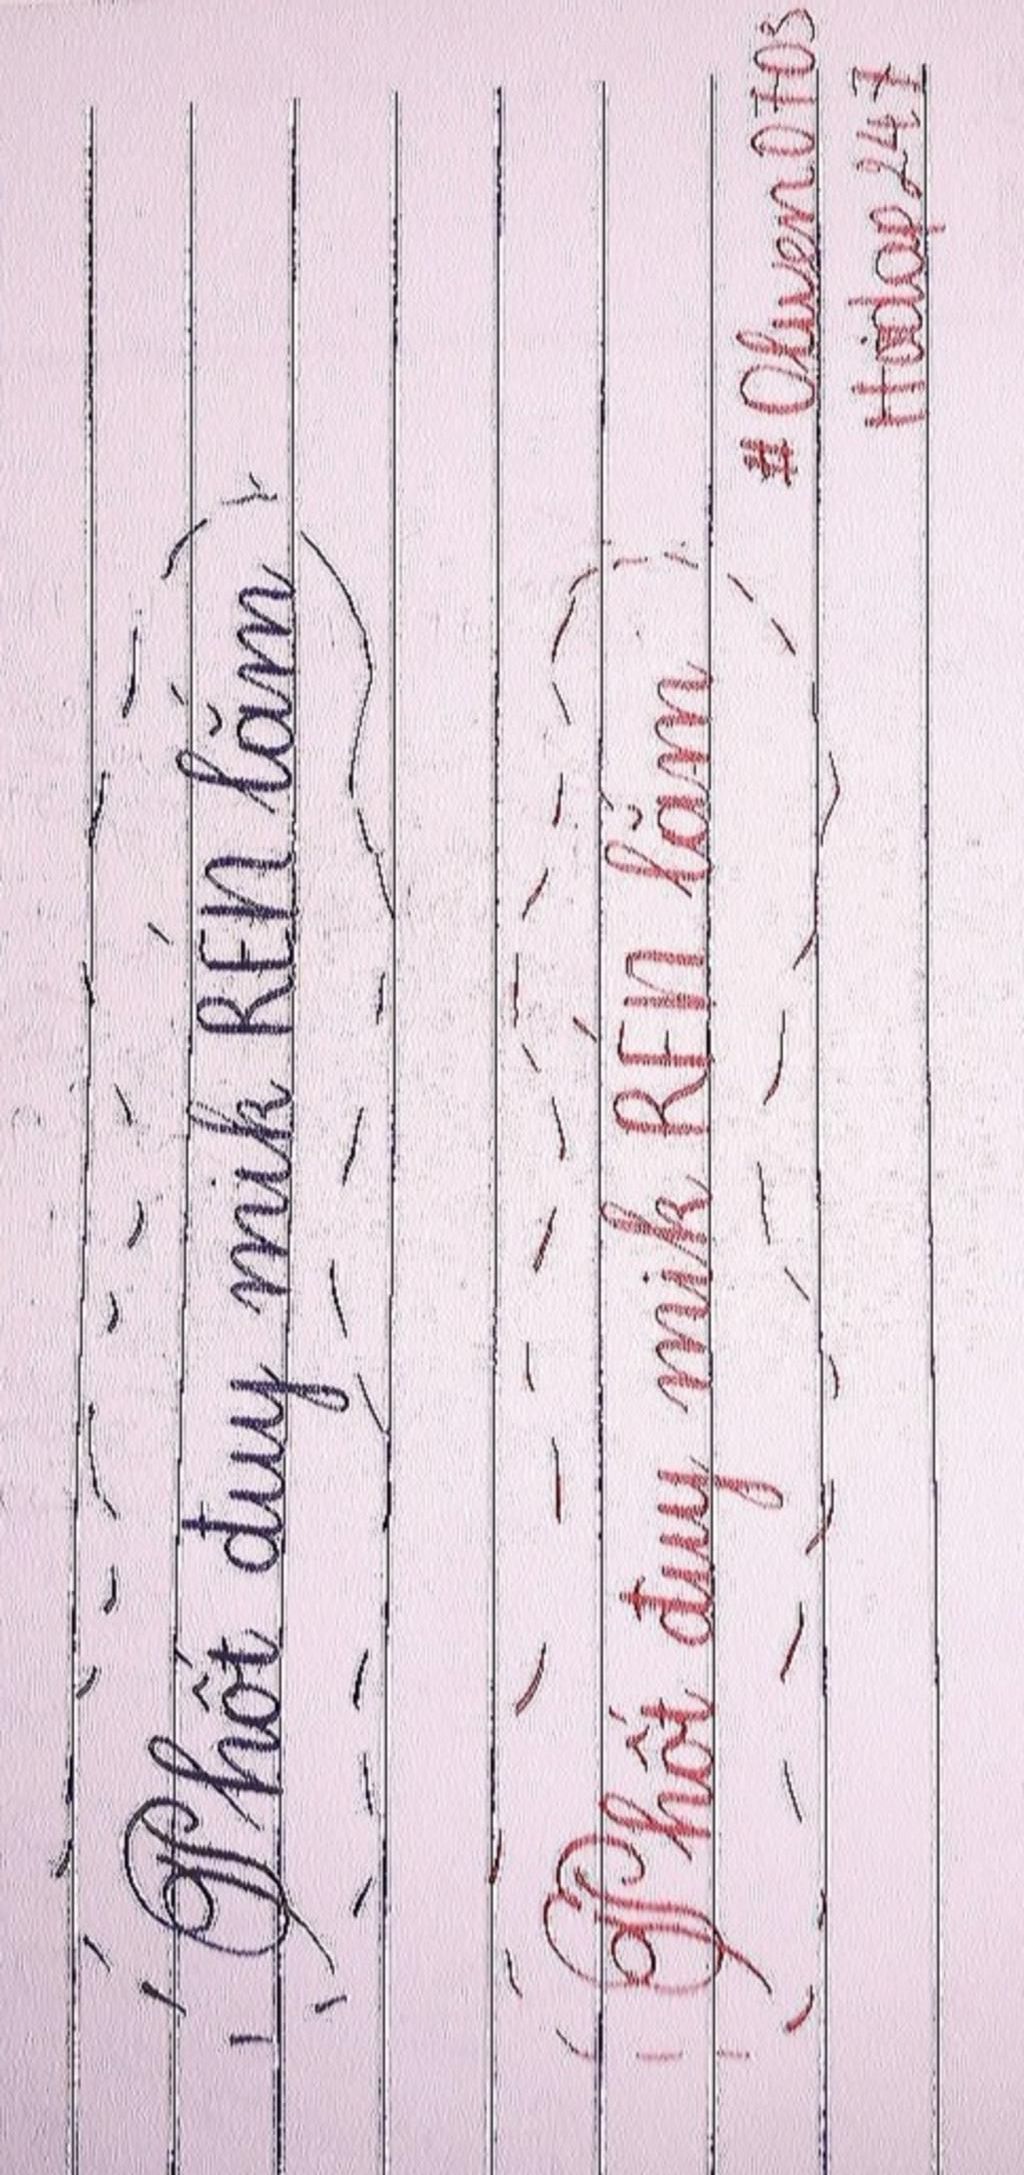 Phốt đuy mik REN lắm
Phốt đuy mik REN lắm
# Oliwen0703
Hoidap247